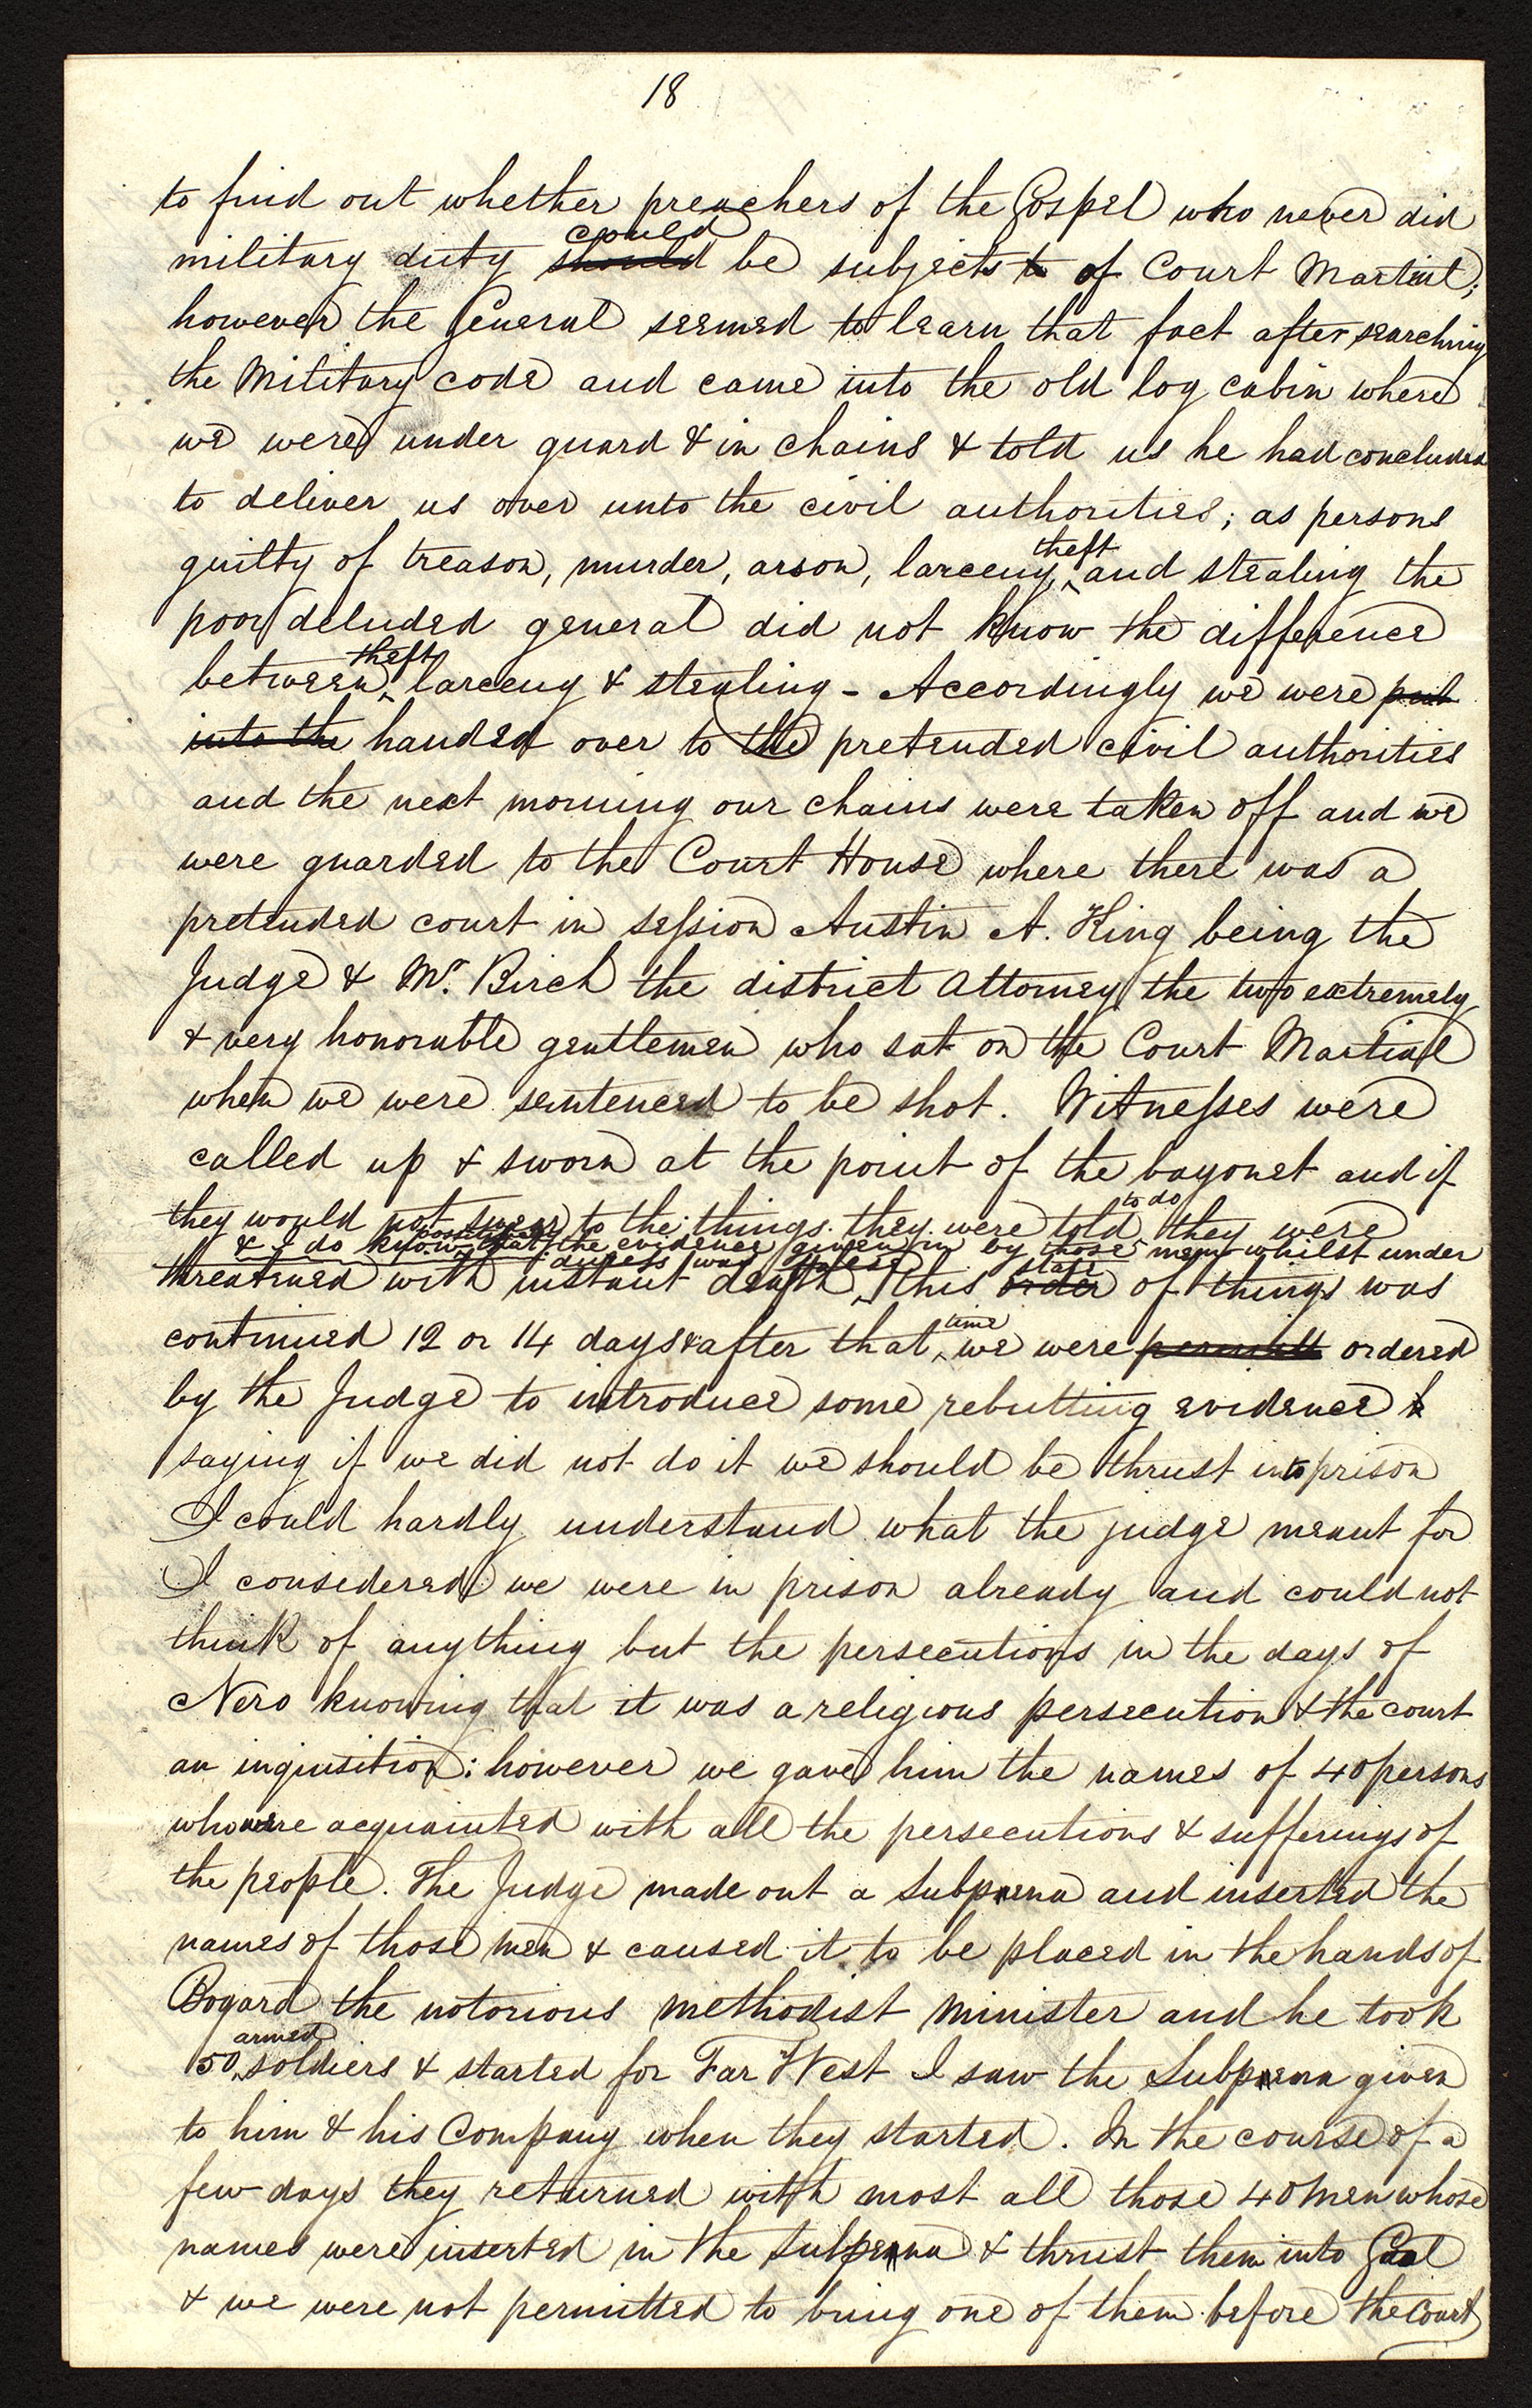 18
to find out whether preachers of the Gospel who never did
could
military duty should be subjects to of Court Martial;
however the General seemed to learn that fact after searching
the Military code and came into the old log cabin where
we were under guard & in chains & told us he had concluded
to deliver us over unto the civil authorities; as persons
theft
guilty of treason, murder, arson, larceny, and stealing the
poor deluded general did not know the difference
theft
between, larceny & stealing - Accordingly we were put
into the handed over to the pretended civil authorities
and the next morning our chains were taken off and we
were guarded to the Court House where there was a
pretended court in session Austin A. King being the
Judge & Mr. Birch the district Attorney the two extremely
& very honorable gentlemen who sat on the Court Martial
when we were sentenced to be shot. Witnesses were
called up & sworn at the point of the bayonet and if
to do
they would not swear to the things they were told they were
positively
& I do know that the evidence given in by those men whilst under
duress was false
state
threatened with instant death, this order of things was
time
continued 12 or 14 days & after that we were ordered
by the Judge to introduce some rebutting evidence
saying if we did not do it we should be thrust into prison
I could hardly understand what the judge meant for
I considered we were in prison already and could not
think of any thing but the persecutions in the days of
Nero knowing that it was a religious persecution & the court
an inquisition: however we gave him the names of 40 persons
who were acquainted with all the persecutions & sufferings of
the people. The Judge made out a Subpœna and inserted the
names of those men & caused it to be placed in the hands of
Bogard the notorious methodist minister and he took
armed
50 soldiers & started for Far West I saw the Subpœna given
to him & his Company when they started. In the course of a
few days they returned with most all those 40 men whose
names were inserted in the Subpœna & thrust them into Gaol
& we were not permitted to bring one of them before the court